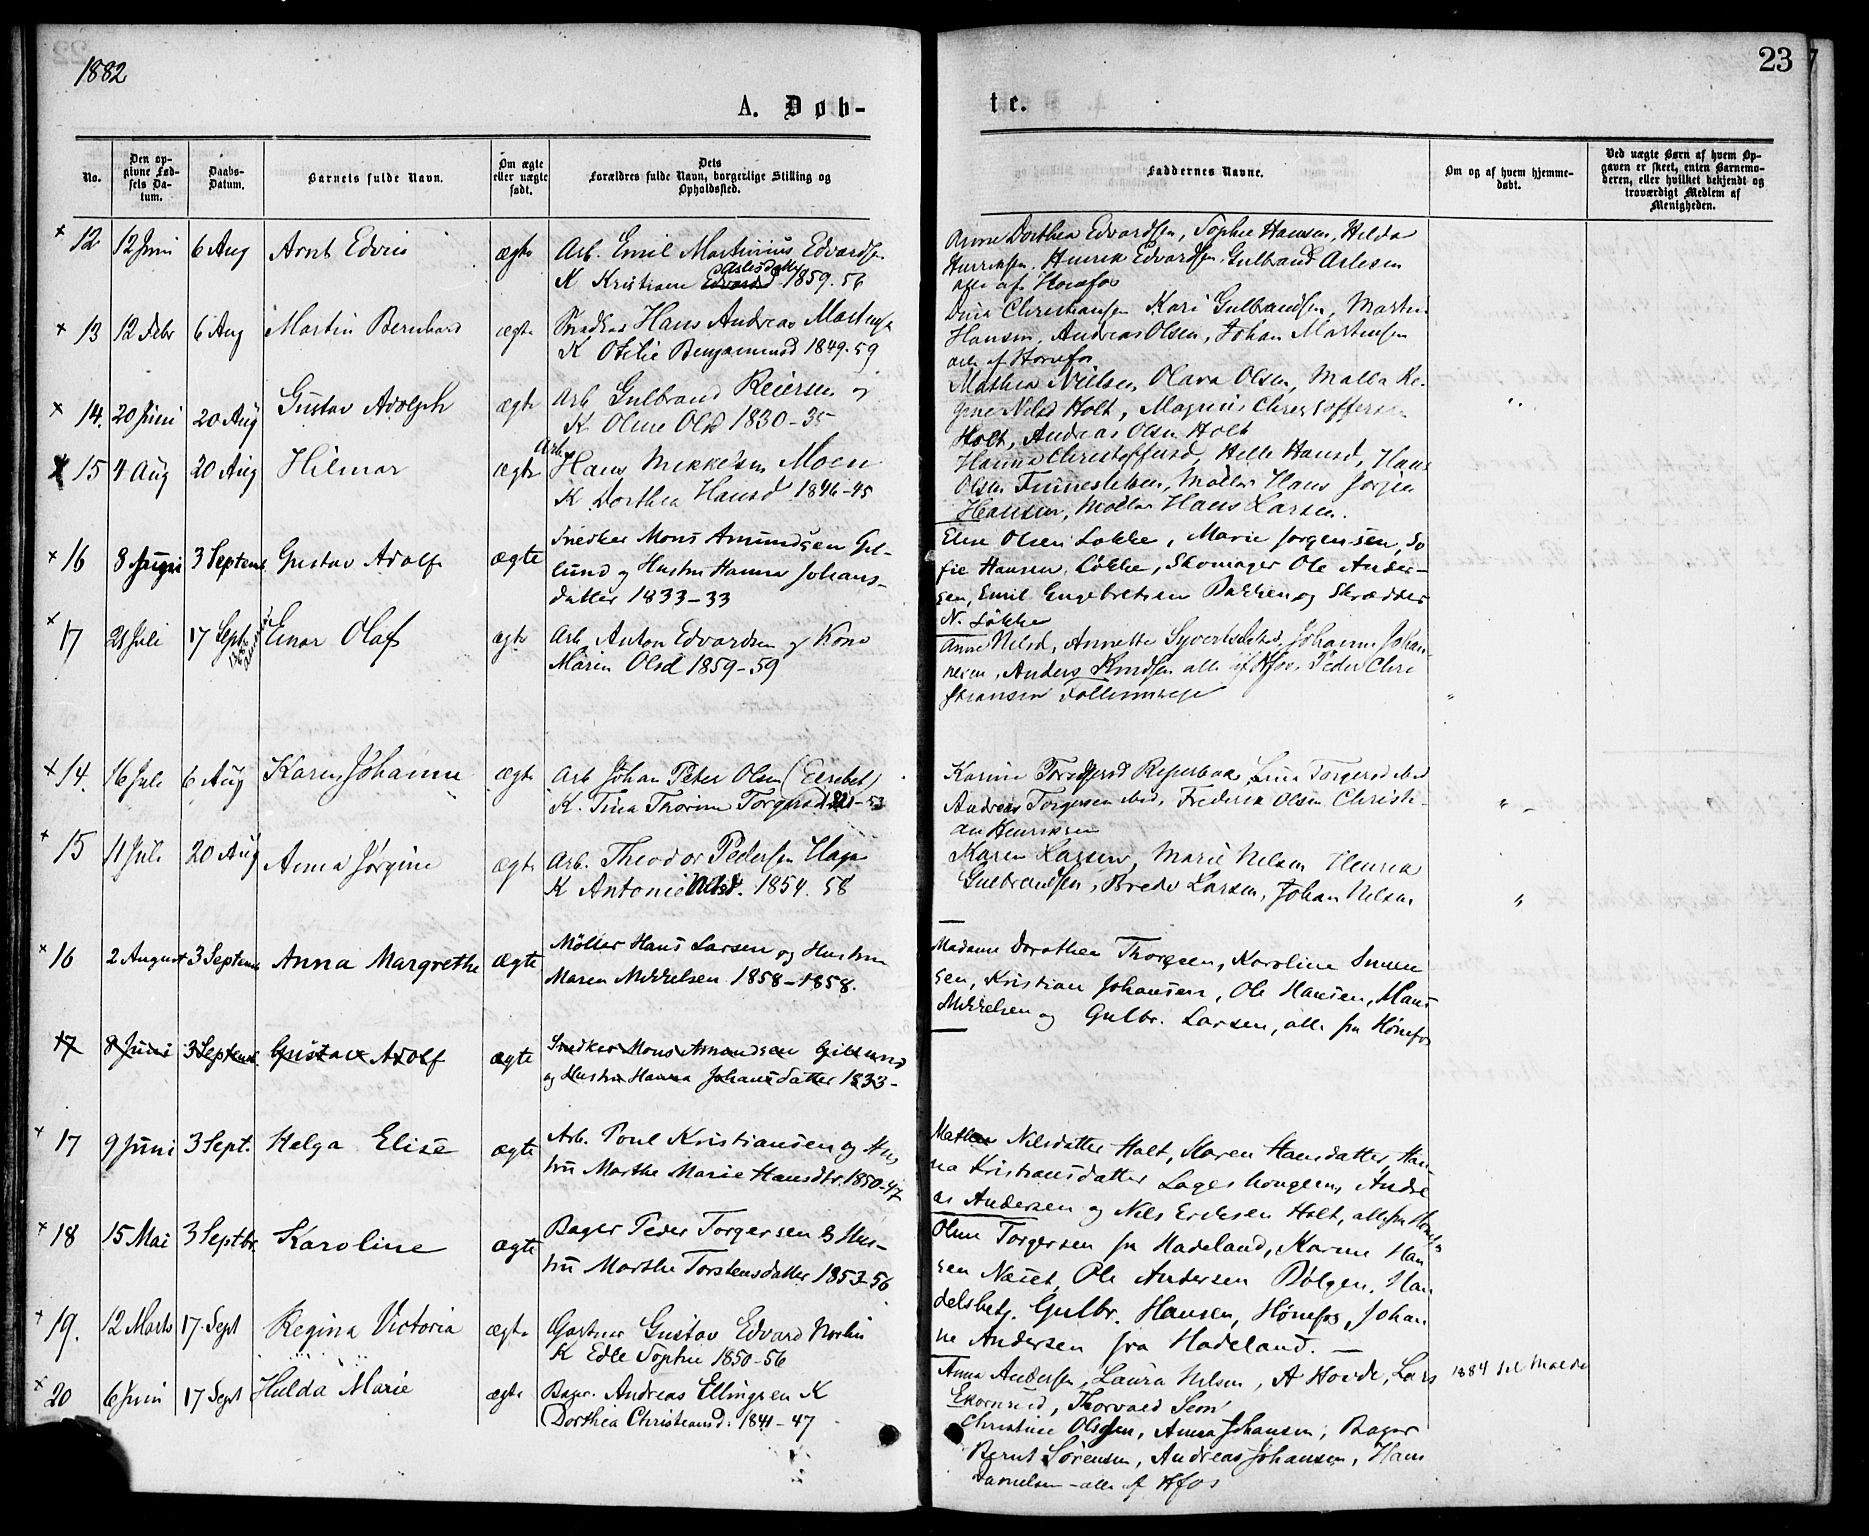 1882
23
A. Døb-
te.
No.
Den op-
givne Fød-
sels Da-
tum.
Daabs-
Datum.
Barnets fulde Navn.
Om ægte
eller uægte
født.
Dets
Forældres fulde Navn, borgerlige Stilling og
Opholdssted.
Faddernes Navne.
Om og af hvem hjemme-
døbt.
Ved uægte Børn af hvem Op-
gaven er skeet, enten Barnemo-
deren, eller hvilket bekjendt og
troværdigt Medlem af
Menigheden.
12 12 Juni 6 Aug Arnt Edvin ægte Arb. Emil Martinius Edvardsen
K Kristiane Aslesdatter 1859. 56
Anne Dorthea Edvardsen, Sophie Hansen, Hilda
Henriksen, Henrik Edvardsen, Gulbrand Aslesen
alle af Hønefos
13 12 Febr 6 Aug Martin Bernhard ægte Hans Andreas Martinsen
K Otilie Benjaminsd 1849. 59
Christiansen Kari Gulbrandsen, Martin
Hansen, Andreas Olsen, Johan Martinsen
alle af Hønefos
14. 20 Juni 20 Aug Gustav Adolph ægte Arb Gulbrand Reiersen og
K Oline Olsd 1830-35
Mathea Nielsen, Olava Olsen,
Nilsd Holt, Magnus Christoffersen
Holt, Andreas Olsen Holt
15 4 Aug 20 Aug Hilmar ægte Arb. Hans Mikkelsen Moen
K Dorthea Hansd 1846-45
Hanna Christoffersd, Helle Hansd, Hans
Olsen Møller Hans Jørgen
Hansen, Møller Hans Larsen.
16 8 Juni 3 Septemb Gustav Adolf ægte Snedker Mons Amundsen Gil-
lund og Hustru Hanna Johans-
datter 1833-33
Elise Olsen Løkke, Marie Jørgensen, So
fie Hansen Løkke, Skomager Ole Ander-
sen, Emil Engebretsen Bakken og Skrædder
N. Løkke
17 21 Juli 17 Sept Einar Olaf ægte Arb. Anton Edvardsen og Kone
Maren Olsd 1859-59
Anne Nilsd, Annette Syvertsd, Johanne Johan-
nesen, Anders Knudsen alle af Hfos, Peder Chri
stiansen
14. 16 Juli 6 Aug Karen Johanne ægte Arb Johan Peter Olsen
K. Tina Thorine Torgersd
Karine Torgersd Lina Torgersd
Andreas Torgersen Frederik Olsen Christi-
an Henriksen
15 11 Juli 20 Aug Anna Jørgine ægte Arb. Theodor Pedersen Hagen
K Antonie Nilsd. 1854. 58
Karen Larsen, Marie Nilsen Henrik
Gulbrandsen, Brede Larsen, Johan Nilsen
16 2 August 3 Septemb Anna Margrethe ægte Møller Hans Larsen og Hustru
Maren Mikkelsen 1858-1858.
Madame Dorothea Thorgsen, Karoline
sen, Kristian Johansen, Ole Hansen, Hans
Mikkelsen og Gulbr. Larsen, alle fra Hønefos
17 8 Juni 3 Septemb. Gustav Adolf ægte Snedker Mons Amundsen Gillund
og Hustru Hanna Johansdatter 1833-
17 9 Juni 3 Sept. Helga Elise ægte Arb. Poul Kristiansen og Hus
tru Marthe Marie Hansdtr. 1850-47
Nilsdatter Holt, Maren Hansdatter, Han-
na Kristiansdatter Lageshougen, Andre
as Andersen og Nils Eriksen Holt, alle fra Hønefos
18 15 Mai 3 Septbr. Karoline ægte Bager Peder Torgersen & Hus-
tru Marthe Torstensdatter 1853-56
Oline Torgersen fra Hadeland, Karine Han
sen Næset, Ole Andersen Bølgen, Han
delsbetj. Gulbr. Hansen, Hønefos, Johan
ne Andersen fra Hadeland. —
19. 12 Marts 17. Sept Regina Victoria ægte Gartner Gustav Edvard Norlin
K Edle Sophie 1850-56
Anna Andersen, Laura Nilsen, A Hovde, Lars
Ekornrud, Thorvald Sem
1884 til Molde
20 6 Juni 17 Sept Hulda Marie ægte Bager Andreas Ellingsen K
Dorthea Christiansd. 1841-47
Christine Olsen, Anna Johansen, Bager
Bernt Sørensen, Andreas Johansen, Hans
Danielsen - alle af Hfos